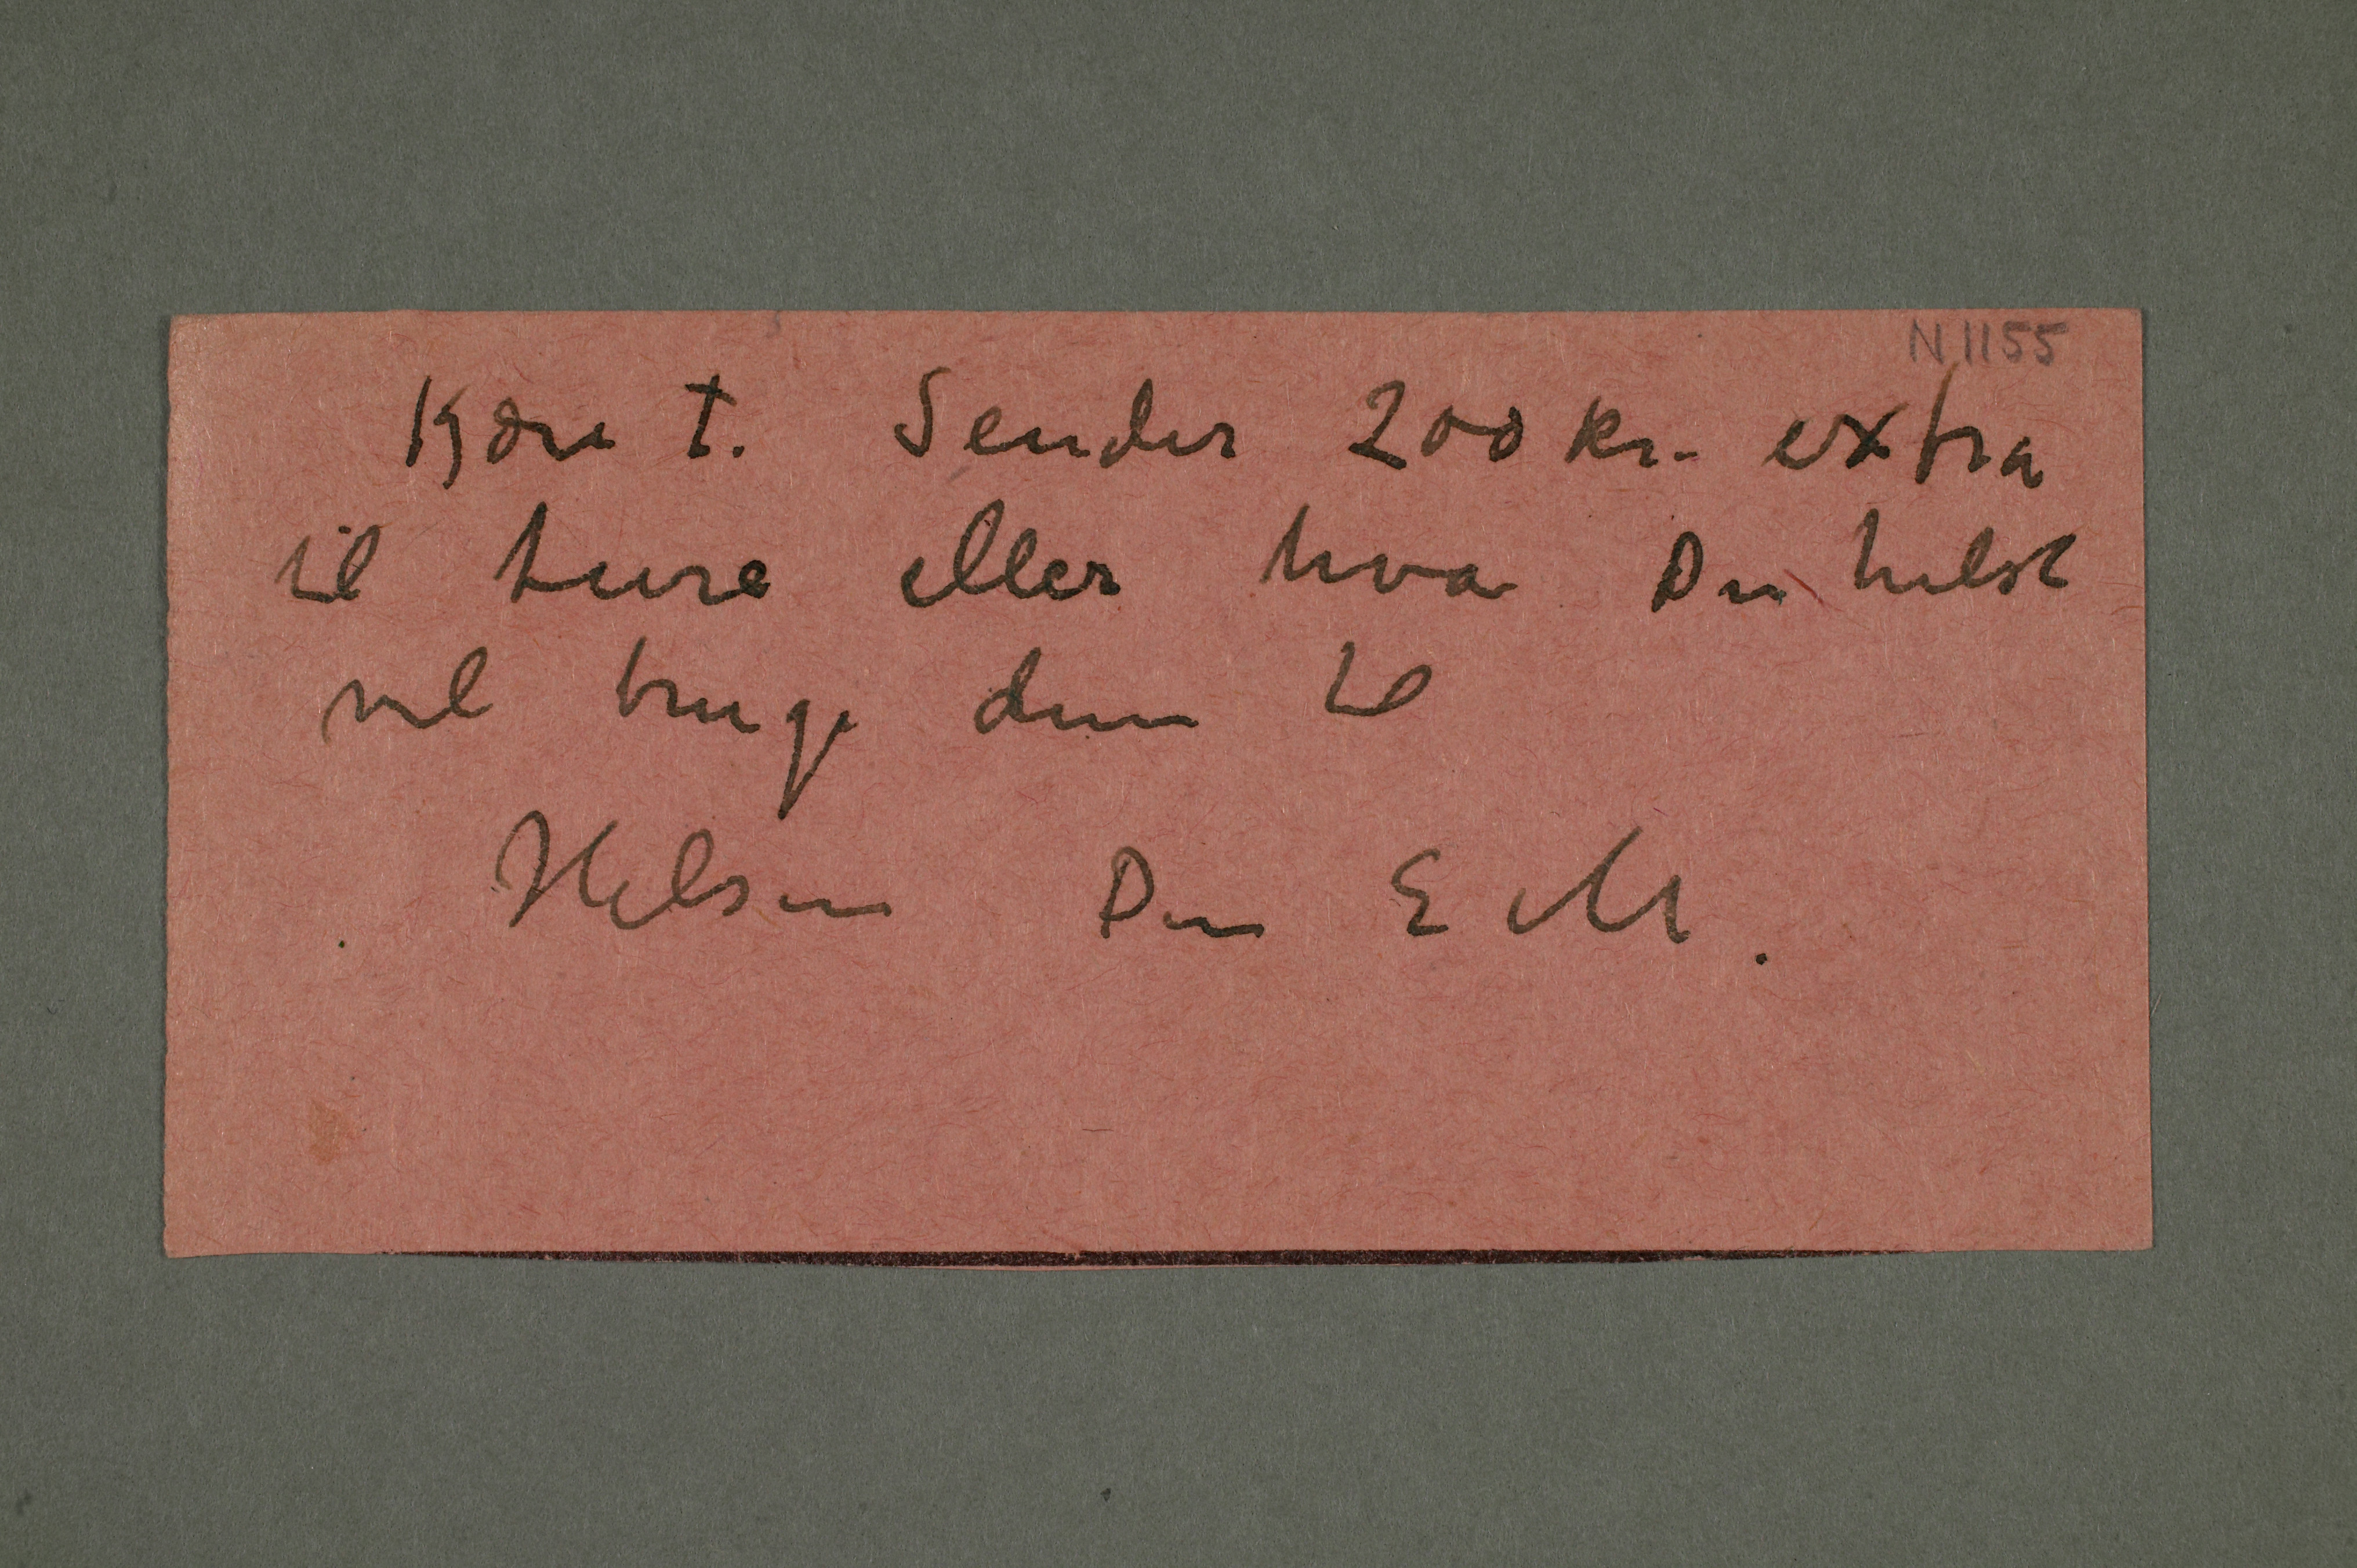 N 1155
Kjære T. Sender 200 kr. extra
til ture eller hva Du helst
vil bruge dem til
Hilsen Din E M.